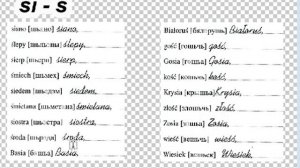 SI - S
siano [шьано] siano,
ślepy [шьлепы] ślepy,
sierp [шьерп] sierp,
śmiech [шьмех] śmiech,
siedem [шьэдэм] siedem,
śmietana [шьметана] śmietana,
siostra [шьостра] siostra,
środa [шьрода] środa,
Basia [башьа] Basia,
Białoruś [бялорушь] Białoruś,
gość [гошьчь] gość,
Gosia [гошьа] Gosia,
kość [кошьчь] kość,
Krysia [крышьа] Krysia,
złość [злошьчь] złość,
Zosia [зошьа] Zosia,
wieść [вешьчь] wieść,
Wiesiek [вешьек] Wiesiek,